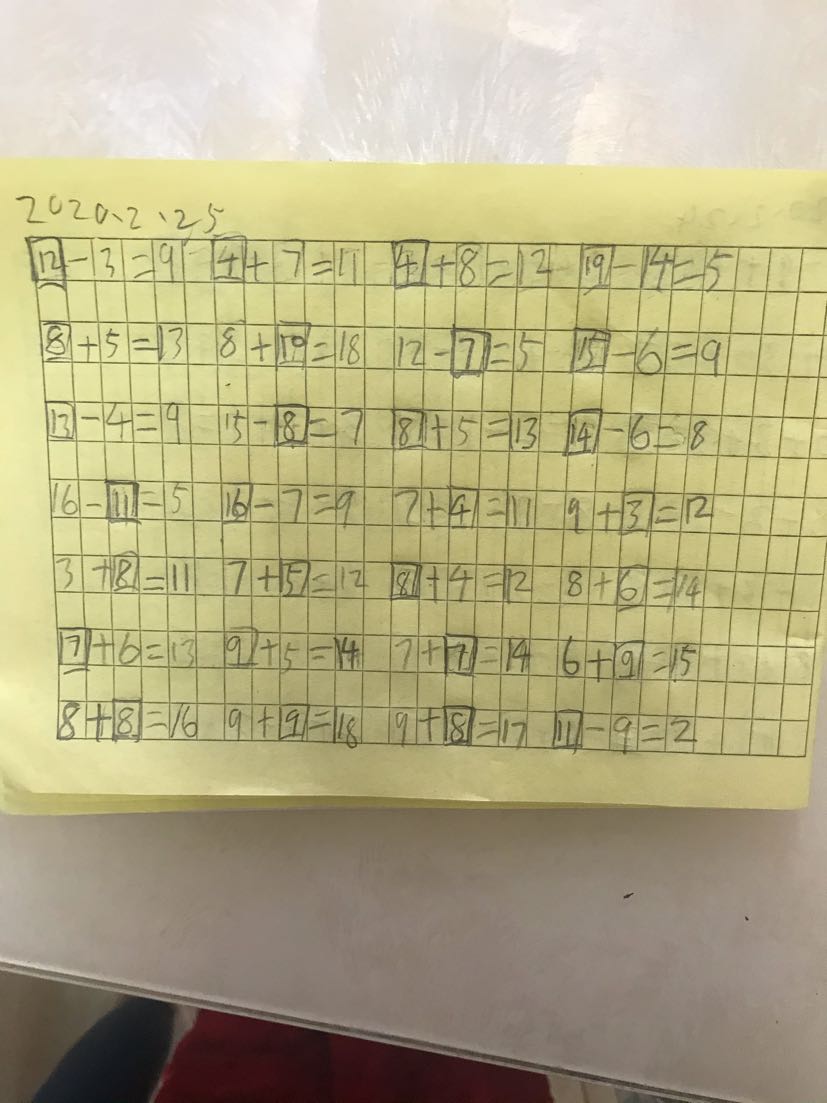 2020、2、25
12-3=9 4+7=11 4+8=12 19-14=5
8+5=13 8+10=18 12-7=5 15-6=9
13-4=9 15-8=7 8+5=13 14-6=8
16-11=5 16-7=9 7+4=11 9+3=12
3+8=11 7+5=12 8+4=12 8+6=14
7+6=13 9+5=14 7+7=14 6+9=15
8+8=16 9+9=18 9+8=17 11-9=2